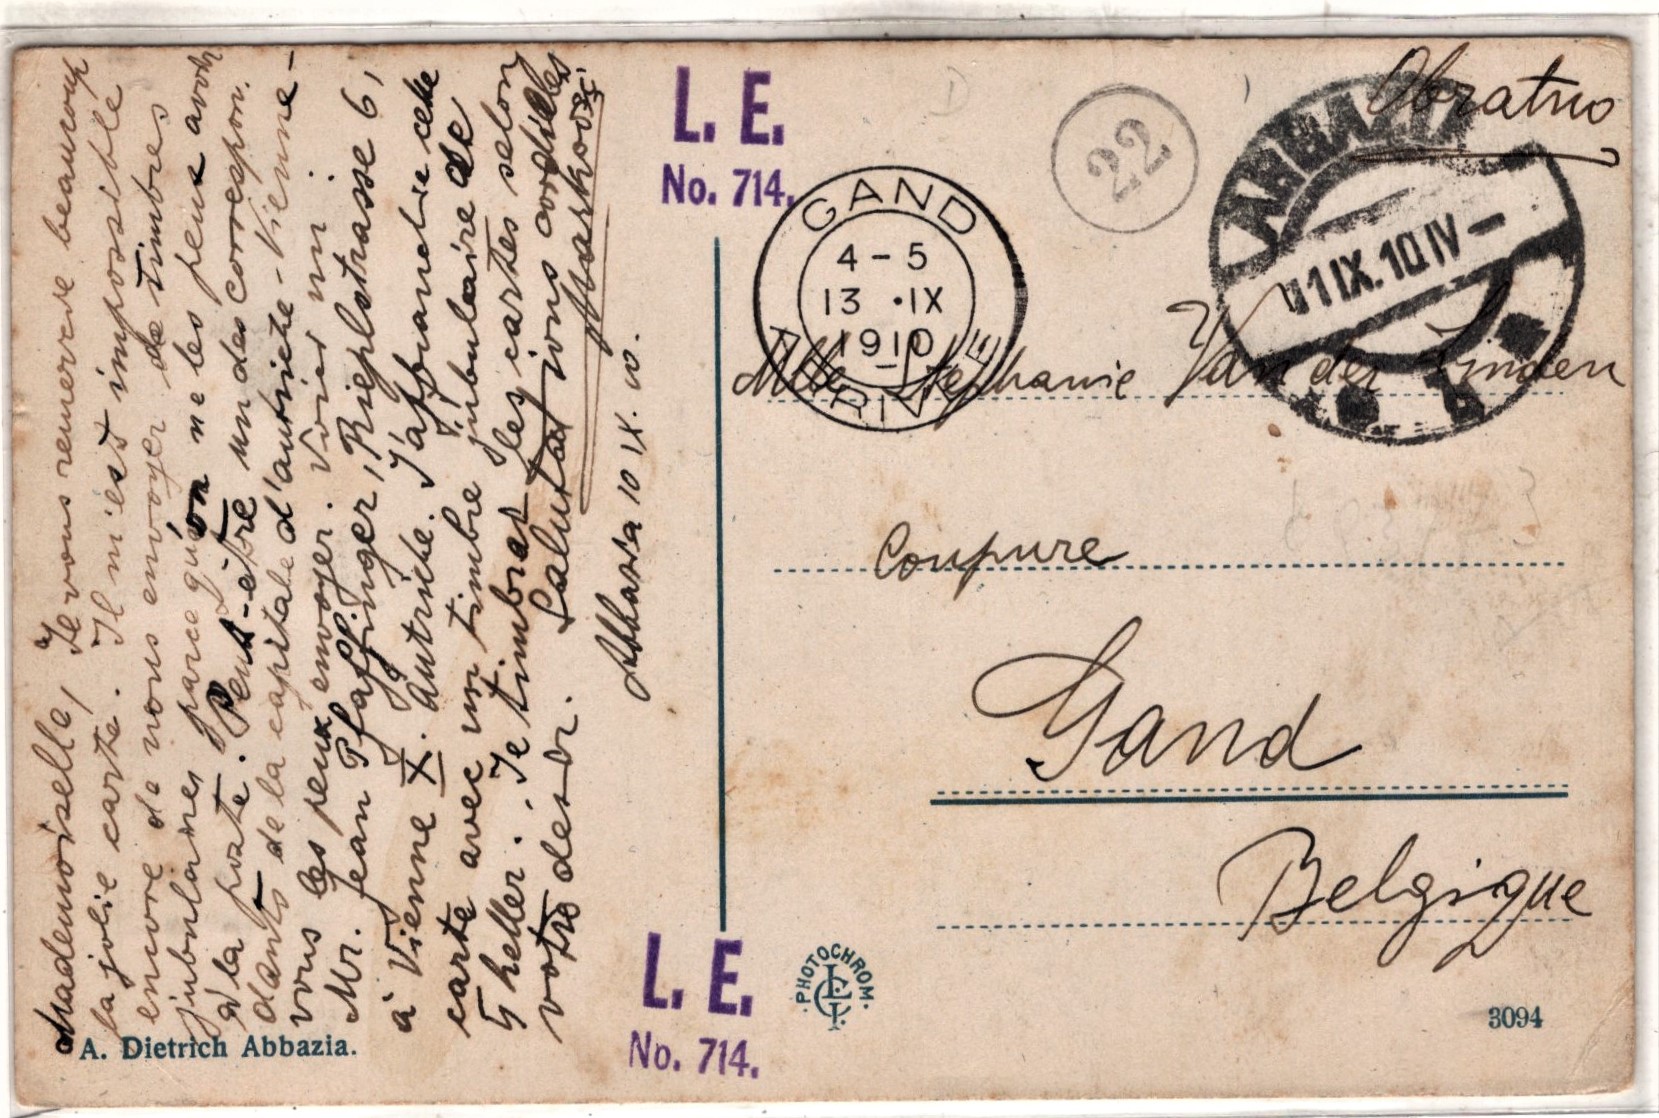 Mademoiselle, Je vous remercie beaucoup
la jolie carte. Il m'est impossible
encore de vous envoyer de timbres
jubulaires parce qu'on ne les peux avoir
à la poste. Peut-être un des correspon-
dants de la capitale d'autriche-Vienne-
vous les peux envoyer. Voici un:
Mr. Jean Pfaffinger, Rieplstrasse 6,
à Vienne X. Autriche. J'afbranchie cette
carte avec un timbre jubulaire de
5 heller. Je timbrai les cartes selon
votre desir. Salutations cordiales
Markovsc
Abbazia 10 IX. 10.
A. Dietrich Abbazia.
L. E.
No. 714.
GAND
4-5
13 ·IX
1910
ARRIVEE
22
Obratno
ABBAZIA
11 IX. 10 IV-
Mlle Stephanie Van der Linden
Coupure
Gand
Belgique
L. E.
No. 714.
PHOTOCHROM
3094